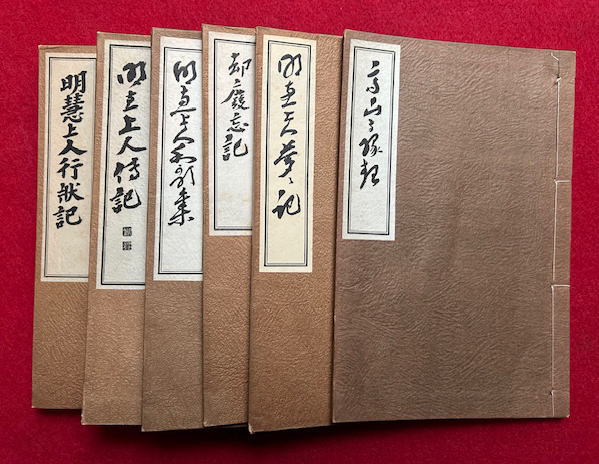 高山寺縁起
明恵上人夢之記
却癈忘記
明恵上人和歌集
明恵上人傳記
明慧上人行状記